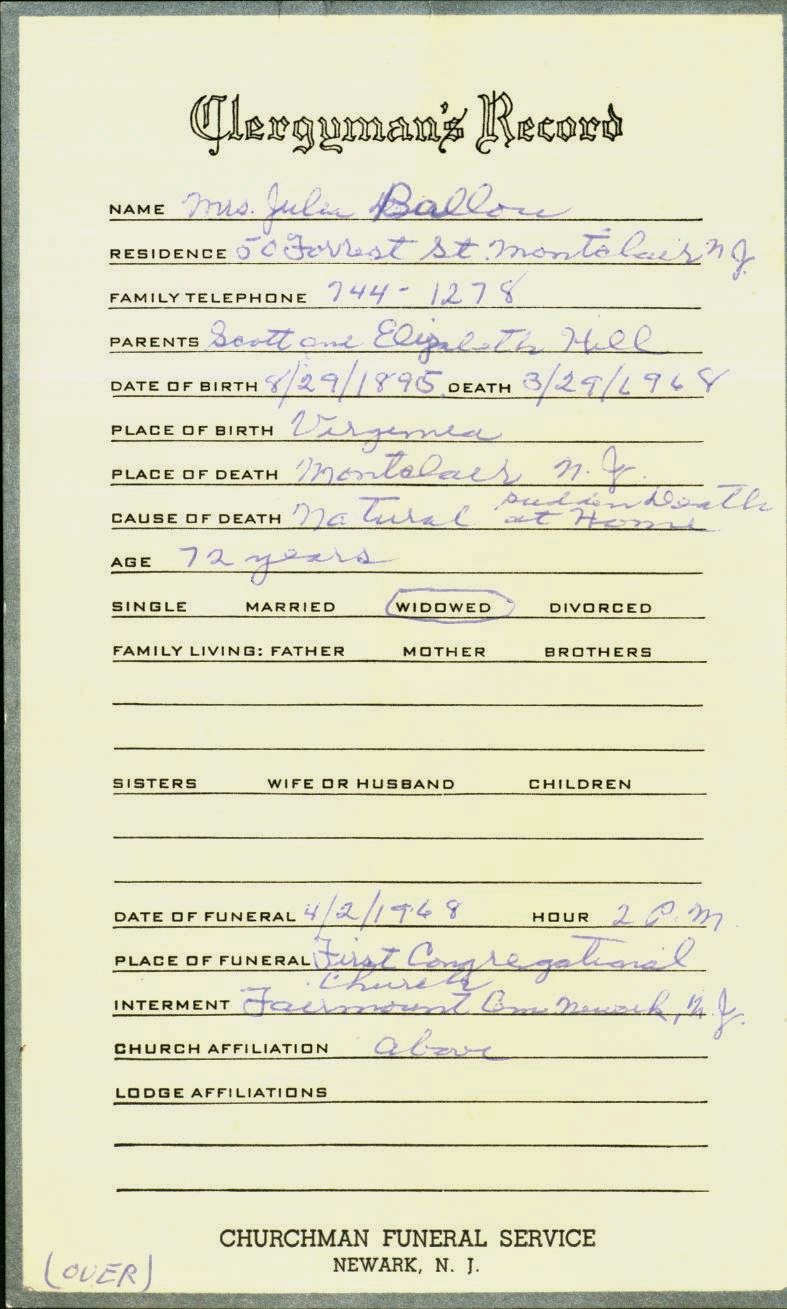 Clergyman's Record
NAME Mrs. Julia Ballou
RESIDENCE 50 Forrest St. Montclair N J.
FAMILY TELEPHONE 744-1278
PARENTS Scott and Elizabeth Hill
DATE OF BIRTH 8/29/1895 DEATH 3/29/1968
PLACE OF BIRTH Virginia
PLACE OF DEATH Montclair N. J.
sudden Death
CAUSE OF DEATH Natural at Home
AGE 72 years
SINGLE MARRIED WIDOWED DIVORCED
FAMILY LIVING: FATHER MOTHER BROTHERS
SISTERS WIFE OR HUSBAND CHILDREN
DATE OF FUNERAL 4/2/1968 HOUR 2 P.M.
PLACE OF FUNERAL First Congregational
Church
INTERMENT Fairmount Cem Newark, N.J.
CHURCH AFFILIATION above
LODGE AFFILIATIONS
CHURCHMAN FUNERAL SERVICE
NEWARK, N. J.
(OVER)